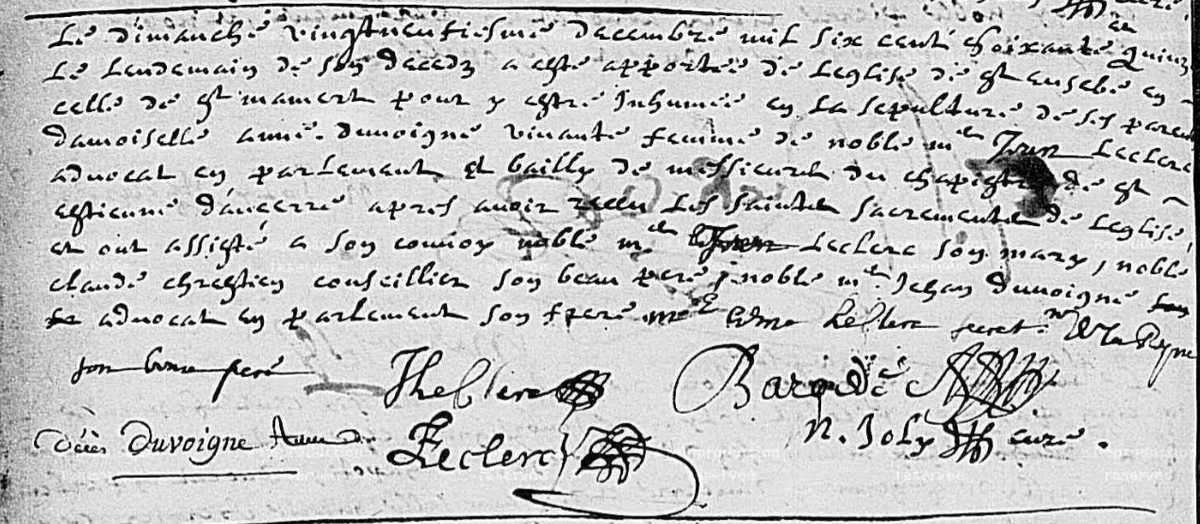 Le dimanche vingtneufiesme decembre mil six cent soixante quinze
Le Lendemain de son deceds a esté apportée de Leglise de st eusebe en
celle de st mamert pour y estre Inhumée en La sepulture de ses parents
damoiselle anne duvoigne vivante femme de noble me Jean Leclerc
advocat en parlement et bailly de messieurs du chapistre de st
estienne d'aucerre apres avoir receu Les saints sacrements de Leglise
et ont assisté a son convoy noble me Jean Leclerc son mary, noble
claude chrestien conseillier son beau pere, noble me Jehan duvoigne
advocat en parlement son frere me Edme Leclerc secret. de la Reyne
son beau pere
JheLeclerc Baragde
N. Joly curé.
Décès Duvoigne Anne Leclerc